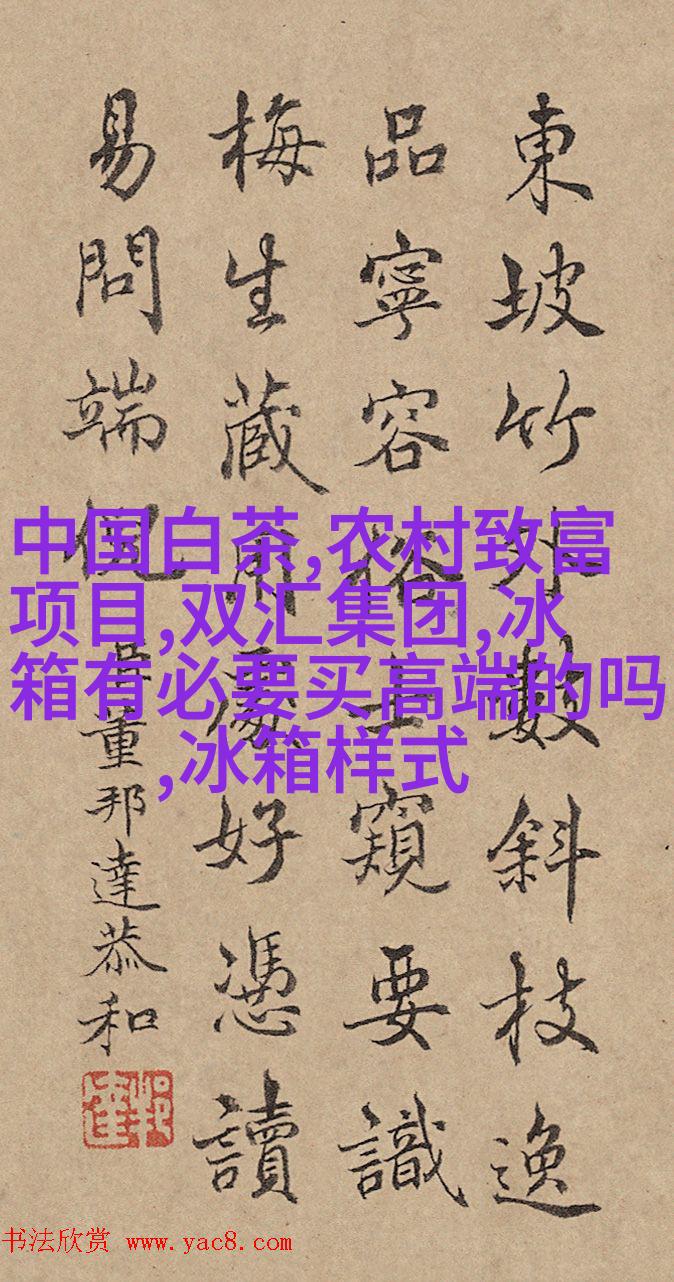 東坡竹外數斜枝逸
品寧容俗士窺要識
梅生藏用處好憑讀
易問端倪
臣董邦達恭和
中国白茶,农村致富
项目,双汇集团,冰
箱有必要买高端的吗
,冰箱样式
书法欣赏 www.yac8.com